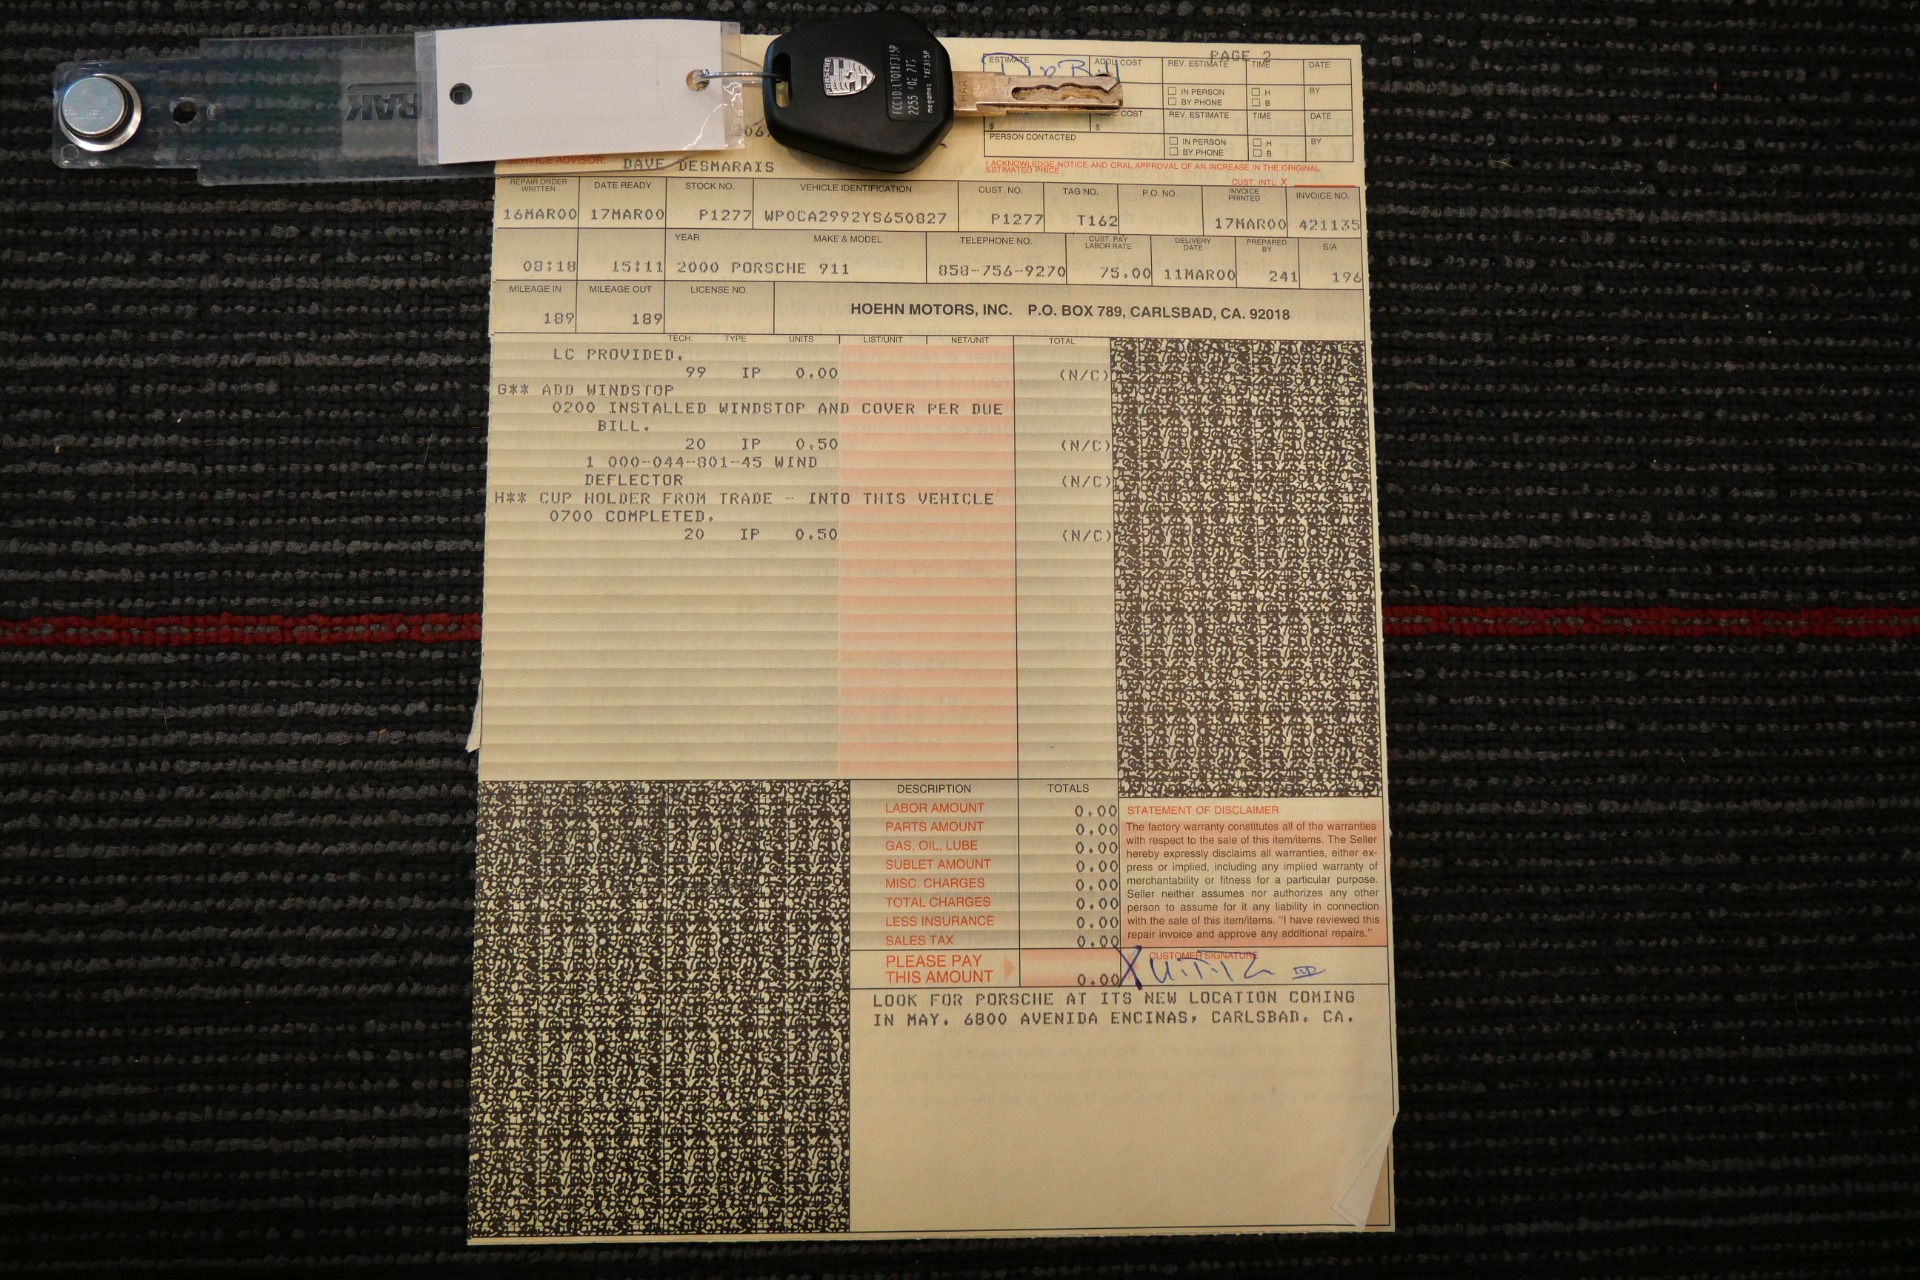 PAGE 2
ESTIMATE ADD'L COST REV. ESTIMATE TIME DATE
Due Bill
IN PERSON H BY
BY PHONE B
COST REV. ESTIMATE TIME DATE
$ $
PERSON CONTACTED IN PERSON H BY
BY PHONE B
PORSCHE
SERVICE ADVISOR: DAVE DESMARAIS
I ACKNOWLEDGE NOTICE AND ORAL APPROVAL OF AN INCREASE IN THE ORIGINAL
ESTIMATED PRICE.
CUST. INTL X
REPAIR ORDER WRITTEN DATE READY STOCK NO. VEHICLE IDENTIFICATION CUST. NO. TAG NO. P.O. NO. INVOICE PRINTED INVOICE NO.
16MAR00 17MAR00 P1277 WP0CA2992YS650827 P1277 T162 17MAR00 421135
YEAR MAKE & MODEL TELEPHONE NO. CUST. PAY LABOR RATE DELIVERY DATE PREPARED BY S/A
08:18 15:11 2000 PORSCHE 911 858-756-9270 75.00 11MAR00 241 196
MILEAGE IN MILEAGE OUT LICENSE NO.
189 189 HOEHN MOTORS, INC. P.O. BOX 789, CARLSBAD, CA. 92018
TECH. TYPE UNITS LIST/UNIT NET/UNIT TOTAL
LC PROVIDED.
99 IP 0.00 (N/C)
G** ADD WINDSTOP
0200 INSTALLED WINDSTOP AND COVER PER DUE
BILL.
20 IP 0.50 (N/C)
1 000-044-801-45 WIND
DEFLECTOR (N/C)
H** CUP HOLDER FROM TRADE - INTO THIS VEHICLE
0700 COMPLETED.
20 IP 0.50 (N/C)
DESCRIPTION TOTALS
LABOR AMOUNT 0.00
PARTS AMOUNT 0.00
GAS, OIL, LUBE 0.00
SUBLET AMOUNT 0.00
MISC. CHARGES 0.00
TOTAL CHARGES 0.00
LESS INSURANCE 0.00
SALES TAX 0.00
PLEASE PAY
THIS AMOUNT 0.00
STATEMENT OF DISCLAIMER
The factory warranty constitutes all of the warranties
with respect to the sale of this item/items. The Seller
hereby expressly disclaims all warranties, either ex-
press or implied, including any implied warranty of
merchantability or fitness for a particular purpose.
Seller neither assumes nor authorizes any other
person to assume for it any liability in connection
with the sale of this item/items. "I have reviewed this
repair invoice and approve any additional repairs."
CUSTOMER SIGNATURE
X
LOOK FOR PORSCHE AT ITS NEW LOCATION COMING
IN MAY. 6800 AVENIDA ENCINAS, CARLSBAD. CA.